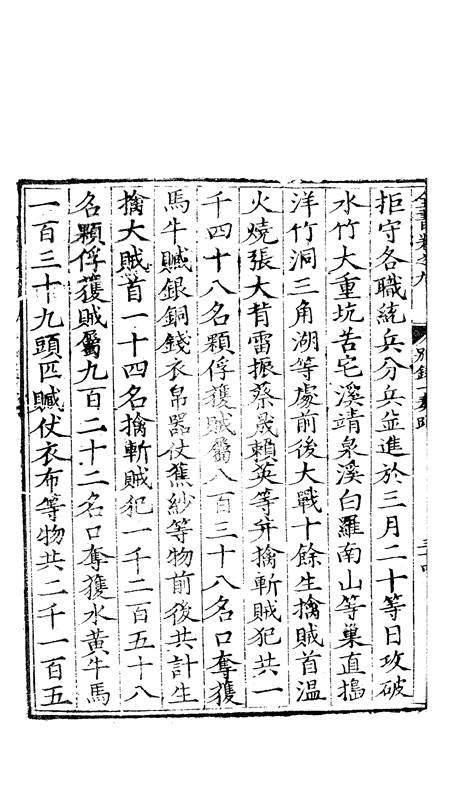 全書卷之九　別錄一奏疏
拒守各職統兵分兵並進於三月二十等日攻破
水竹大重坑苦宅溪靖泉溪白羅南山等巢直搗
洋竹洞三角湖等處前後大戰十餘生擒賊首溫
火燒張大背雷振蔡晟賴英等并擒斬賊犯共一
千四十八名顆俘獲賊屬八百三十八名口奪獲
馬牛贓銀銅錢衣帛器仗蕉紗等物前後共計生
擒大賊首一十四名擒斬賊犯一千二百五十八
名顆俘獲賊屬九百二十二名口奪獲水黃牛馬
一百三十九頭匹贓仗衣布等物共二千一百五